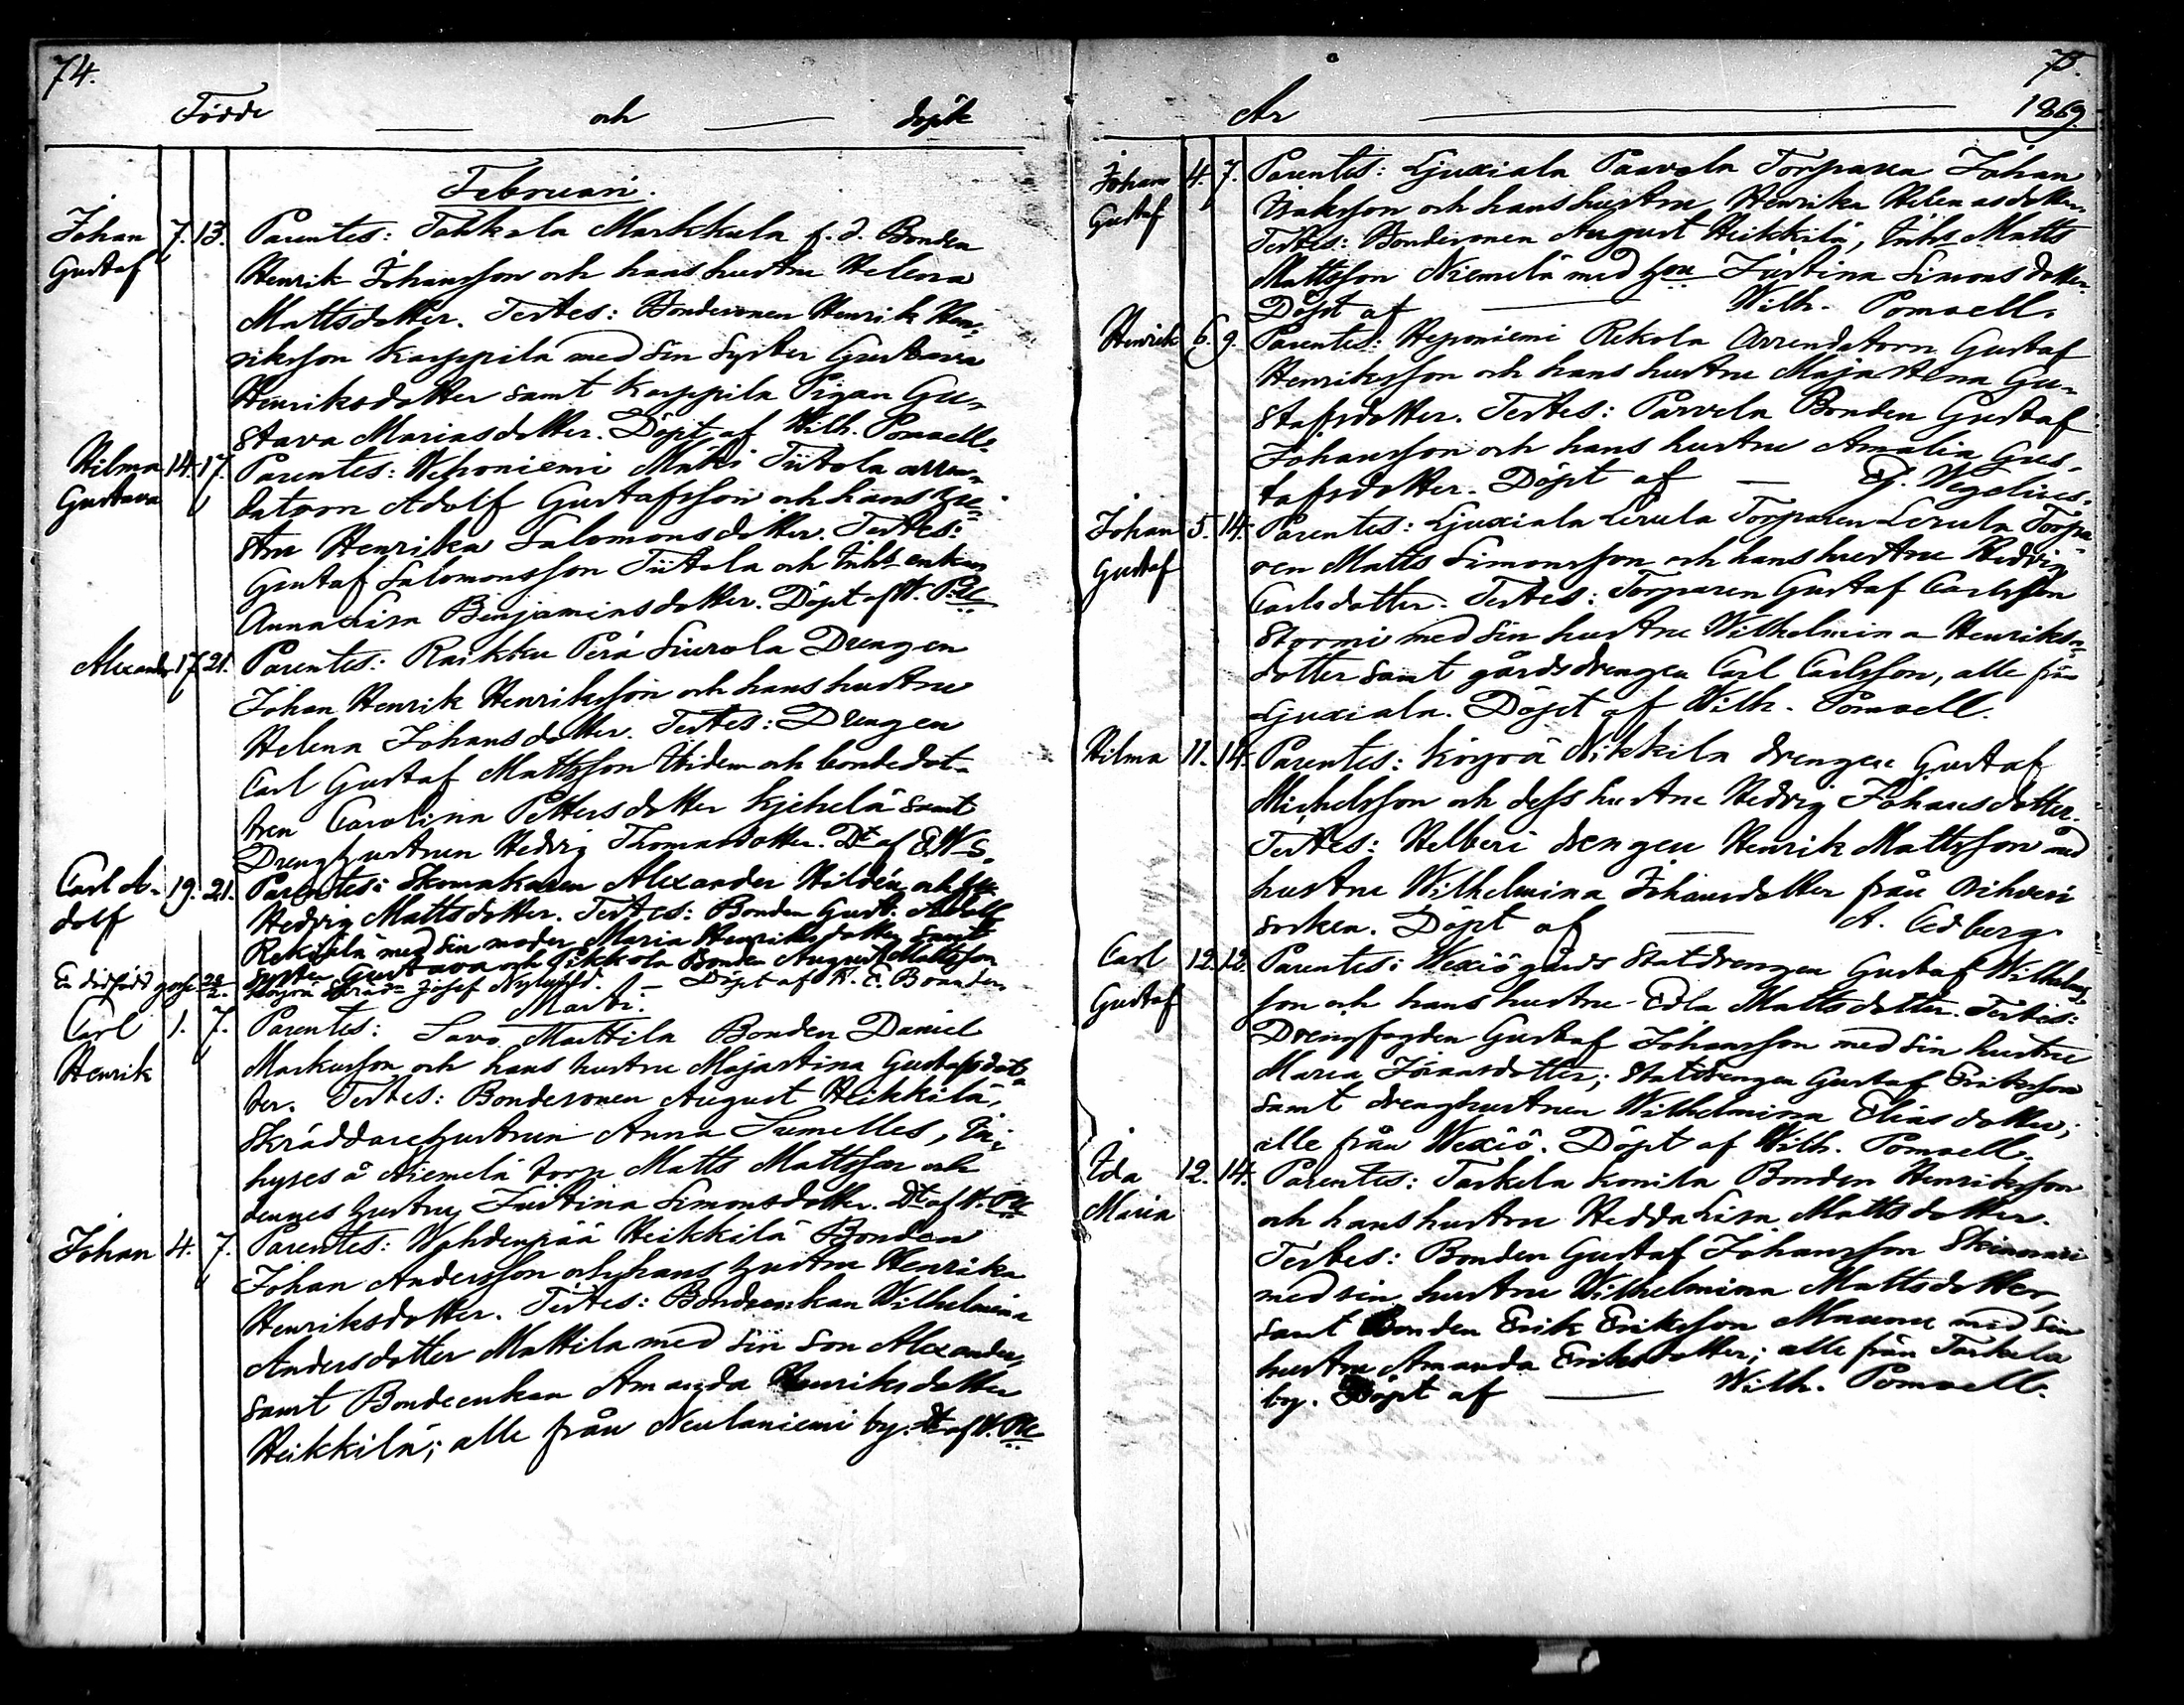 74.
Födde och döpte
Februari.
Johan Gustaf 7. 13. Parentes: Tahkala Markkula f.d. Bonden
Henrik Johansson och hans hustru Helena
Mattsdotter. Testes: Bondesonen Henrik Hen-
riksson Karppila med sin syster Gustava
Henriksdotter samt Karppila Pigan Gu-
stava Mariasdotter. Döpt af Wilh. Pomoell.
Hilma Gustava 14. 17. Parentes: Wehoniemi Mäki Tiitola arren-
datorn Adolf Gustafsson och hans hu-
stru Henrika Salomonsdotter. Testes:
Gustaf Salomonsson Tiitola och Inhs enkan
Anna Lisa Benjaminsdotter. Döpt af W. P:ll.
Alexander 17. 21. Parentes: Raikku Perä Siurola Drengen
Johan Henrik Henriksson och hans hustru
Helena Johansdotter. Testes: Drengen
Carl Gustaf Mattsson Ibidem och bondedot-
tren Carolina Pettersdotter Kjekelä samt
Drenghustrun Hedvig Thomasdotter. Dt af E. W-s.
Carl A-dolf 19. 21. Parentes: Skomakaren Alexander Hildén och hu
Hedvig Mattsdotter. Testes: Bonden Gust: Adolf
Rekikilä med sin moder Maria Henriksdotter samt
syster Gustava och Pikkola Bonden August Mattsson
En dödfödd gosse 28/2. Skräd= Josef Nylund. — Döpt af K. E. Brander
Marti.
Carl Henrik 1. 7. Parentes: Savo Mattila Bonden Daniel
Markusson och hans hustru Majastina Gustafsdot-
ter. Testes: Bondesonen August Heikkilä,
Skräddarehustrun Anna Sumelles, In-
hyses å Niemelä torp Matts Mattsson och
dennes hustru Justina Simonsdotter. Dt af W. P:ll
Johan 4. 7. Parentes: Wahdenpää Heikkilä Bonden
Johan Andersson och hans hustru Henrika
Henriksdotter. Testes: Bondeenkan Wilhelmina
Andersdotter Mattila med sin son Alexander,
samt Bondeenkan Amanda Henriksdotter
Heikkilä; alle från Neulaniemi by. Dt af W. P:ll
75.
År 1869.
Johan Gustaf 4. 7. Parentes: Ljuxiala Paavola Torparen Johan
Isaksson och hans hustru Henrika Helenasdotter.
Testes: Bondesonen August Heikkilä, Inhs Matts
Mattsson Niemelä med hu Justina Simonsdotter.
Döpt af — Wilh. Pomoell.
Henrik 6. 9. Parentes: Heponiemi Rekola Arrendatorn Gustaf
Henriksson och hans hustru Maja Stina Gu-
stafsdotter. Testes: Parvela Bonden Gustaf
Johansson och hans hustru Amalia Gus-
tafsdotter. Döpt af — Ej. Wegelius.
Johan Gustaf 5. 14. Parentes: Ljuxiala Lerula Torparen Lerula Torpa-
ren Matts Simonsson och hans hustru Hedvig
Carlsdotter. Testes: Torparen Gustaf Carlsson
Stormi med sin hustru Wilhelmina Henriks-
dotter samt gårdsdrengen Carl Carlsson, alle från
Ljuxiala. Döpt af Wilh. Pomoell.
Hilma 11. 14. Parentes: Köyrä Nikkilä drengen Gustaf
Michelsson och dess hustru Hedvig Johansdotter.
Testes: Helberi drengen Henrik Mattsson med
hustru Wilhelmina Johansdotter från Orihvesi
socken. Döpt af — A. Cedberg.
Carl Gustaf 12. 12. Parentes: Wexiö gårds Statdrengen Gustaf Wilhelms-
son och hans hustru Edla Mattsdotter. Testes:
Drengfogden Gustaf Johansson med sin hustru
Maria Joinasdotter; Statdrengen Gustaf Eriksson
samt drenghustrun Wilhelmina Eliasdotter;
alle från Wexiö. Döpt af Wilh. Pomoell.
Ida Maria 12. 14. Parentes: Tarkela Konila Bonden Henriksson
och hans hustru Hedda Lisa Mattsdotter.
Testes: Bonden Gustaf Johansson Skinnari
med sin hustru Wilhelmina Mattsdotter,
samt Bonden Erik Eriksson Maunu med sin
hustru Amanda Eriksdotter; alle från Tarkela
by. Döpt af — Wilh. Pomoell.